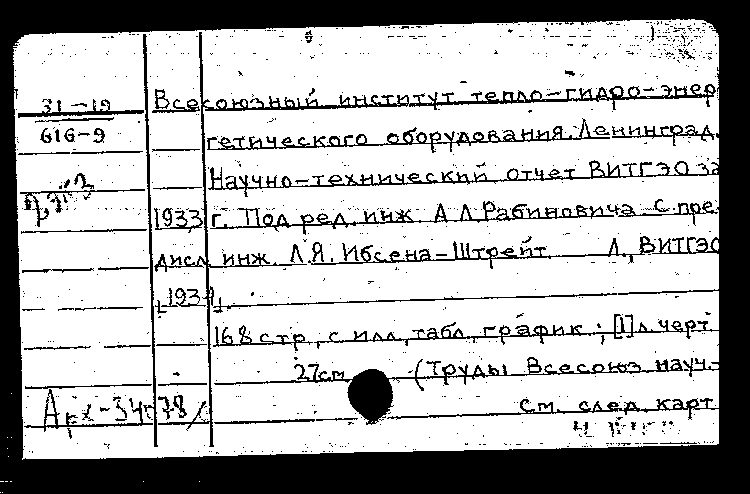 31-19
616-9
Всесоюзный институт тепло-гидро-энер
гетического оборудования. Ленинград.
Научно-технический отчет ВИТГЭО за
1933 г. Под ред. инж. А.Л. Рабиновича с пре-
дисл. инж. Л.Я. Ибсена-Штрейт Л., ВИТГЭО
168 стр., с илл., табл., график.; [1] л. черт.
27см. (Труды Всесоюз. науч.-
См. след. карт.